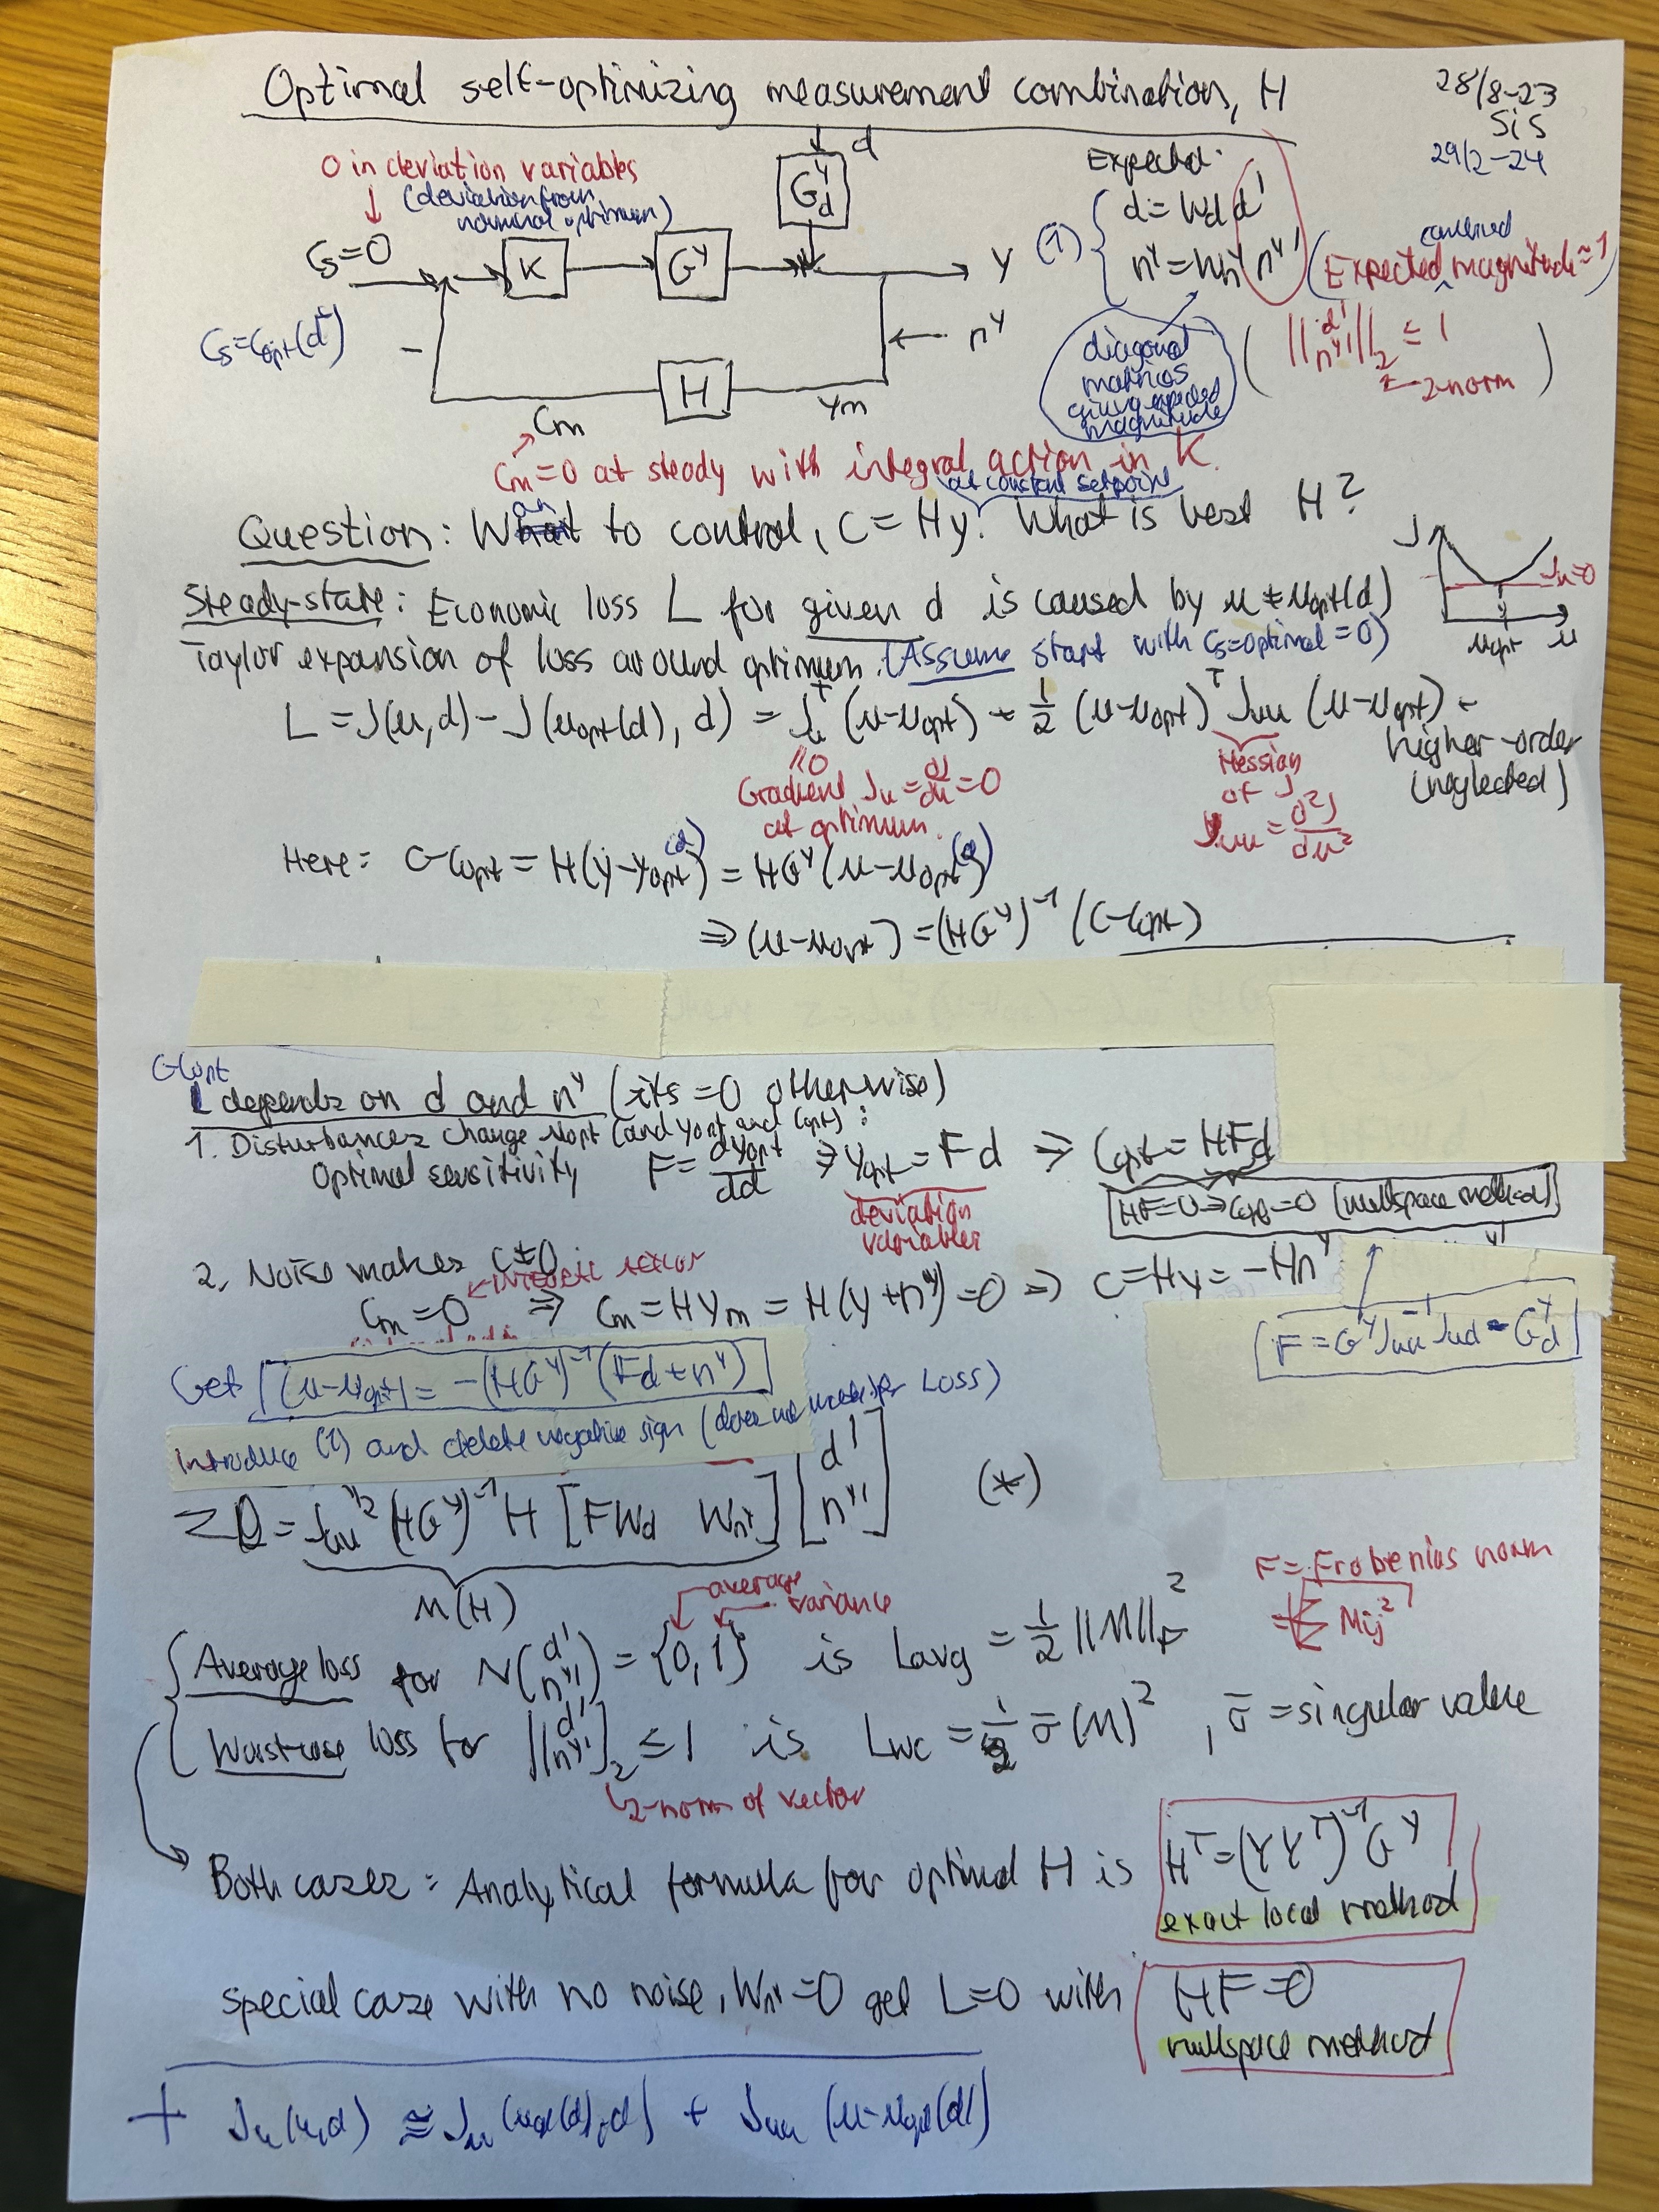 Optimal self-optimizing measurement combination, H
28/8-23
SiS
29/2-24
0 in deviation variables
(deviation from
nominal optimum)
d
G_d^y
Expected:
d = W_d d'
(1)
n^y = W_n^y n^y'
combined
(Expected magnitude ≈ 1)
c_s=0
K
G^y
y
c_s=c_opt(d*)
-
n^y
diagonal
matrices
giving expected
magnitude
( ||d' n^y'||_2 ≤ 1 )
2-norm
H
c_m
y_m
c_m=0 at steady with integral action in K.
at constant setpoint
Question: What to control, c=Hy? What is best H?
J
J_u=0
u_opt
u
Steady-state: Economic loss L for given d is caused by u≠u_opt(d)
Taylor expansion of loss around optimum. (Assume start with c_s=optimal=0)
L = J(u,d) - J(u_opt(d), d) = J_u^T (u-u_opt) + 1/2 (u-u_opt)^T J_uu (u-u_opt) +
higher-order
(neglected)
=0
Gradient J_u = dJ/du = 0
at optimum.
Hessian
of J
J_uu = d²J/du²
Here: c-c_opt = H(y-y_opt(d)) = HG^y(u-u_opt(d))
⇒ (u-u_opt) = (HG^y)^-1 (c-c_opt)
c-c_opt
depends on d and n^y (it's =0 otherwise)
1. Disturbances change u_opt (and y_opt and c_opt):
Optimal sensitivity F = dy_opt/dd ⇒ y_opt = Fd ⇒ c_opt = HFd
deviation
variables
HF=0 ⇒ c_opt=0 (nullspace method)
2. Noise makes c≠0
c_m=0 ⇒ c_m = Hy_m = H(y+n^y)=0 ⇒ c=Hy=-Hn^y
(F = G^y J_uu^-1 J_ud - G_d^y)
Get (u-u_opt) = -(HG^y)^-1 (Fd+n^y)
introduce (1) and delete negative sign (does not matter for Loss)
z = J_uu^1/2 (HG^y)^-1 H [FW_d W_n^y] [d' n^y'] (*)
M(H)
average
variance
F = Frobenius norm
= √Σ M_ij²
Average loss for N(d' n^y') = {0,1} is L_avg = 1/2 ||M||_F^2
Worst-case loss for ||d' n^y'||_2 ≤ 1 is L_wc = 1/2 σ̄(M)^2, σ̄ = singular value
2-norm of vector
Both cases: Analytical formula for optimal H is H^T=(YY^T)^-1 G^y
exact local method
special case with no noise, W_n^y=0 get L=0 with HF=0
nullspace method
+ J_u(u,d) ≅ J_u(u_opt(d),d) + J_uu (u-u_opt(d))